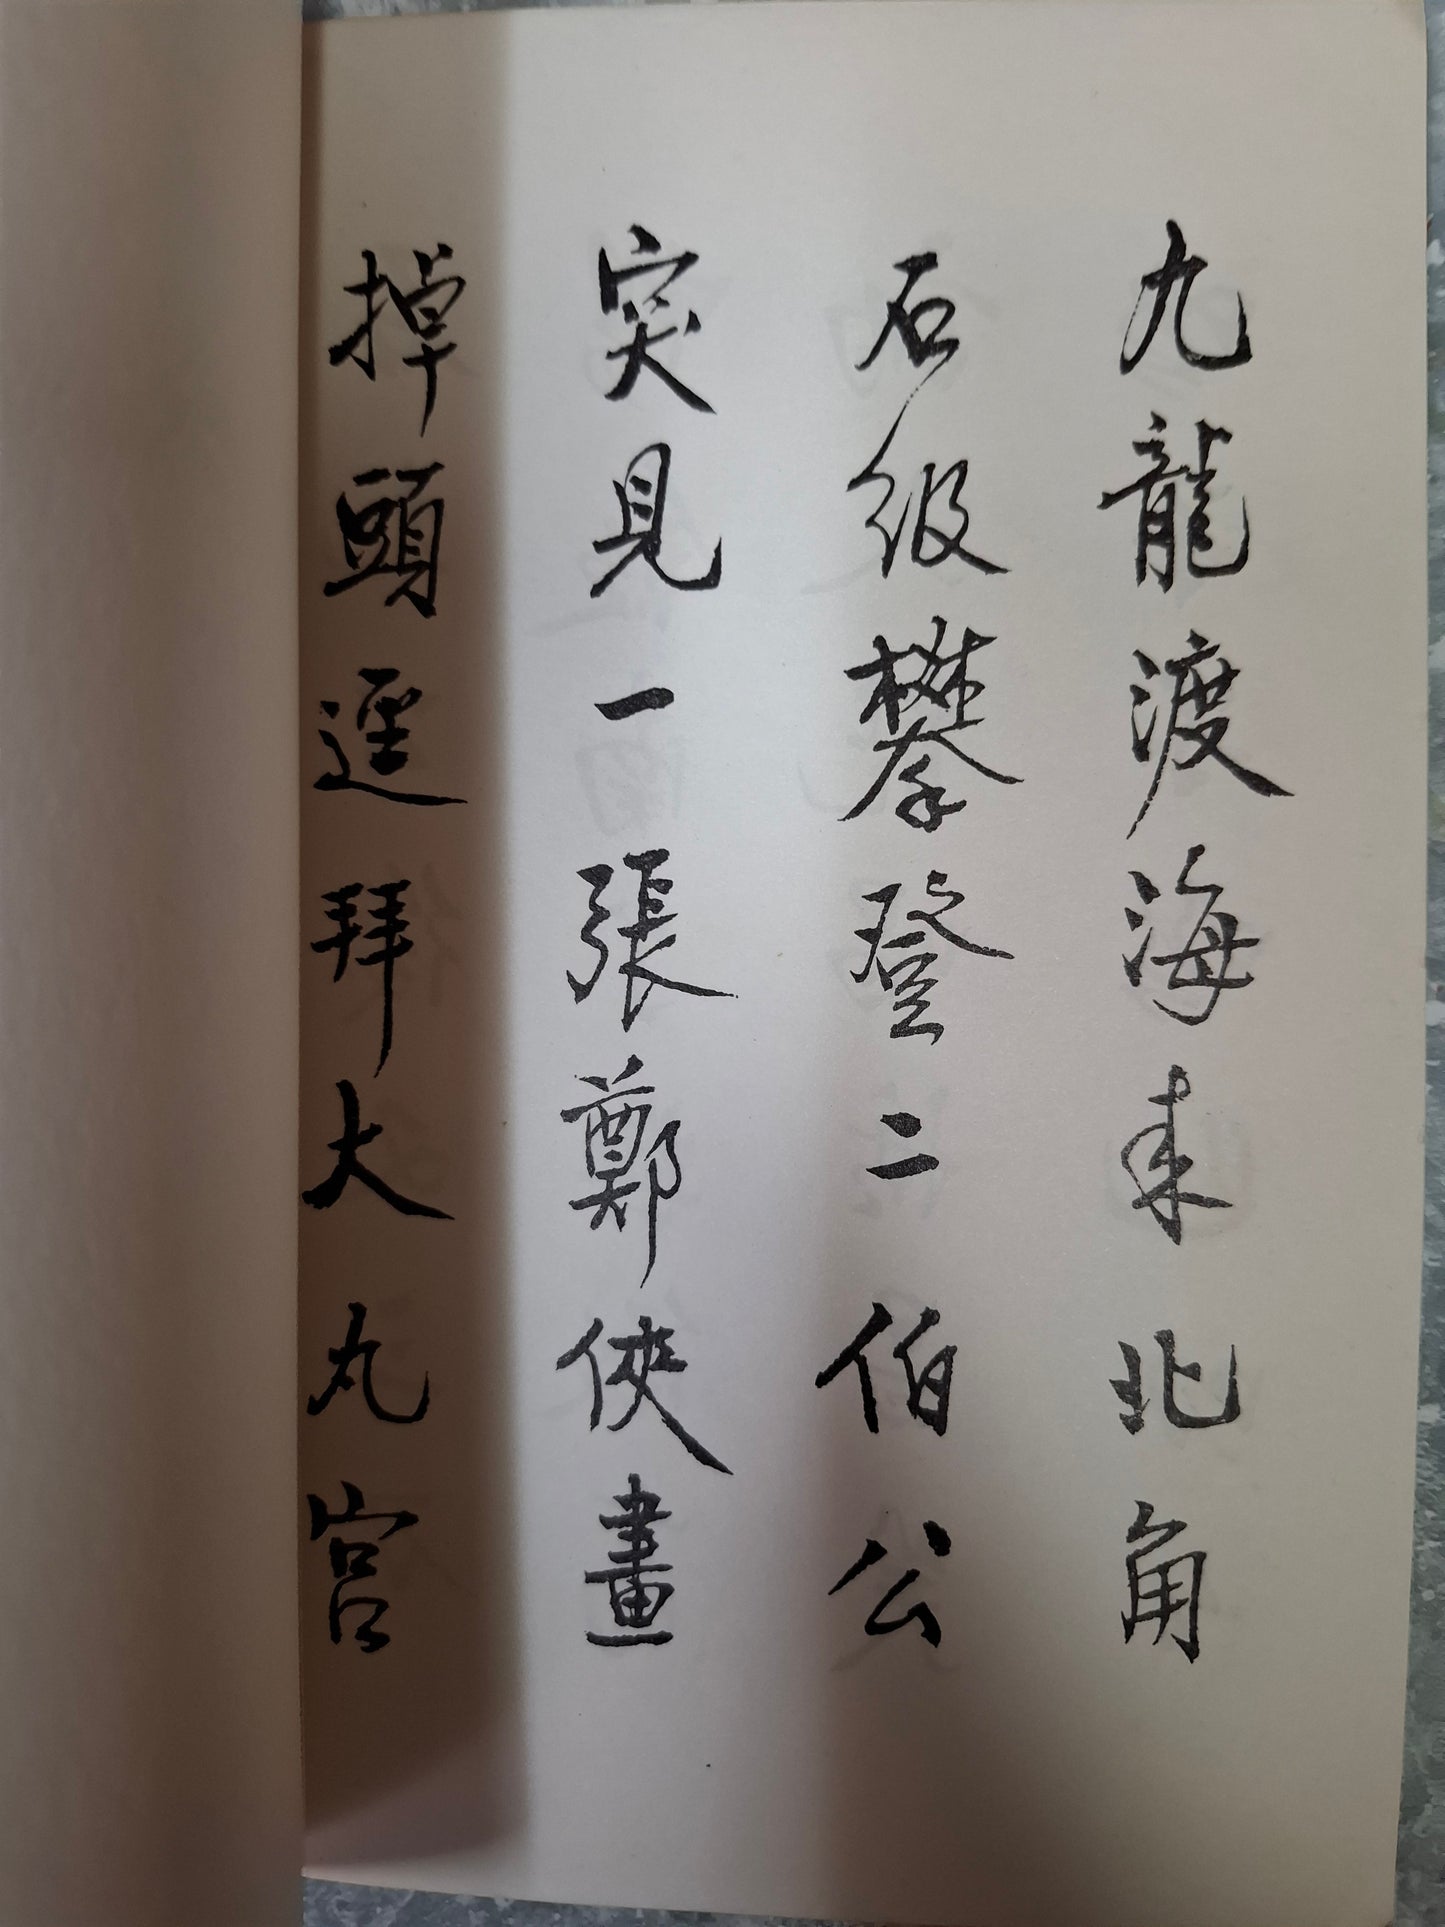 九龍渡海来北角
石級攀登二伯公
突見一張鄭俠畫
掉頭逕拜大丸宮